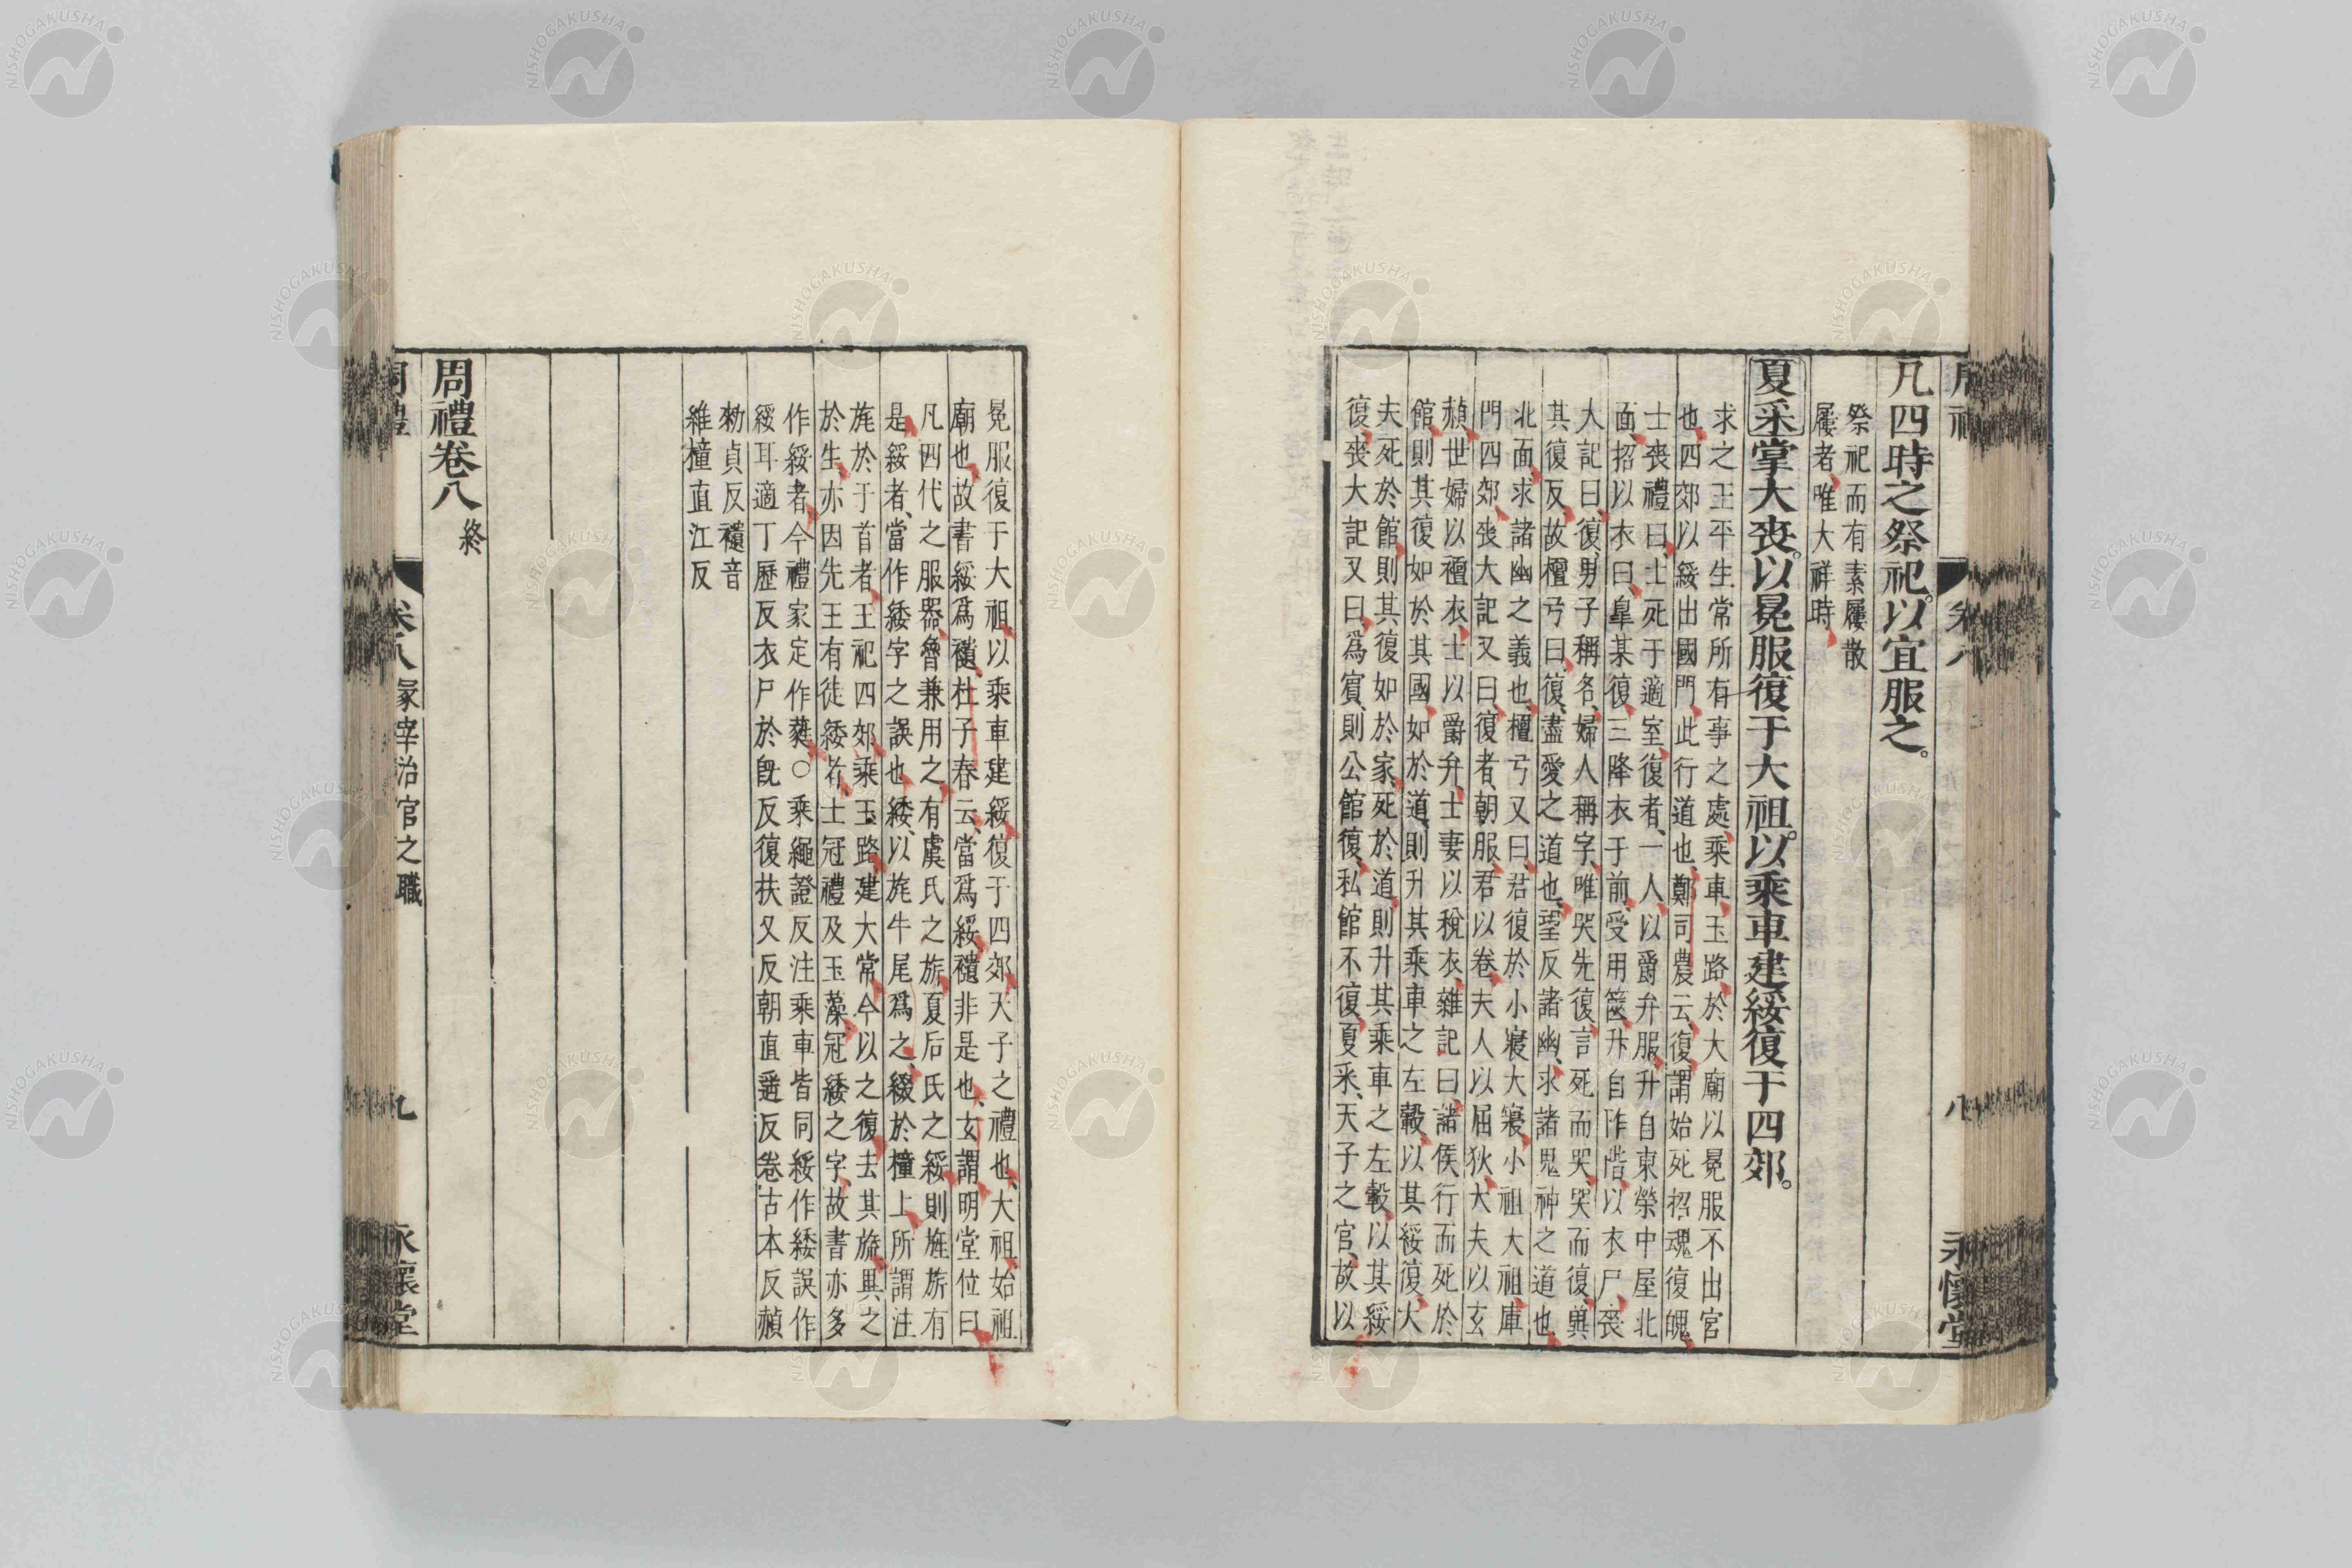 凡四時之祭祀。以宜服之。
祭祀而有素屨散
屨者、唯大祥時、
夏采掌大喪。以冕服復于大祖。以乘車建綏復于四郊。
求之王平生常所有事之處、乘車、玉路、於大廟以冕服不出宮
也、四郊以綏出國門、此行道也、鄭司農云、復、謂始死招魂復魄、
士喪禮曰、士死于適室、復者、一人、以爵弁服、升自東榮中屋北
面、招以衣曰、皐某復、三降衣于前、受用篋、升自阼階、以衣尸、喪
大記曰、復、男子稱名、婦人稱字、唯哭先復、言死而哭、哭而復、異
其復反、故檀弓曰、復、盡愛之道也、望反諸幽、求諸鬼神之道也、
北面、求諸幽之義也、檀弓又曰、君復於小寢大寢、小祖大祖、庫
門四郊、喪大記又曰、復者、朝服、君以卷、夫人以屈狄、大夫以玄
赬、世婦以襢衣、士以爵弁、士妻以稅衣、雜記曰、諸侯行而死於
館、則其復如於其國、如於道、則升其乘車之左轂、以其綏復、大
夫死於館、則其復如於家、死於道、則升其乘車之左轂、以其綏
復、喪大記又曰、爲賓、則公館復、私館不復、夏采、天子之官、故以
冕服復于大祖、以乘車建綏、復于四郊、天子之禮也、大祖、始祖
廟也、故書綏爲䙡、杜子春云、當爲綏、䙡非是也、玄謂、明堂位曰、
凡四代之服器、魯兼用之、有虞氏之旂、夏后氏之綏、則旌旂有
是綏者、當作緌字之誤也、緌、以旄牛尾爲之、綴於橦上、所謂注
旄於于首者、王祀四郊、乘玉路、建大常、今以之復、去其旒、異之
於生、亦因先王有徒緌者、士冠禮及玉藻、冠緌之字、故書亦多
作綏者、今禮家定作蕤、○乘繩證反注乘車皆同綏作緌誤作
綏耳適丁歷反衣尸於旣反復扶又反朝直遥反卷古本反赬
勑貞反䙡音
維橦直江反
周禮卷八 終
卷八 冢宰治官之職
九
永懷堂